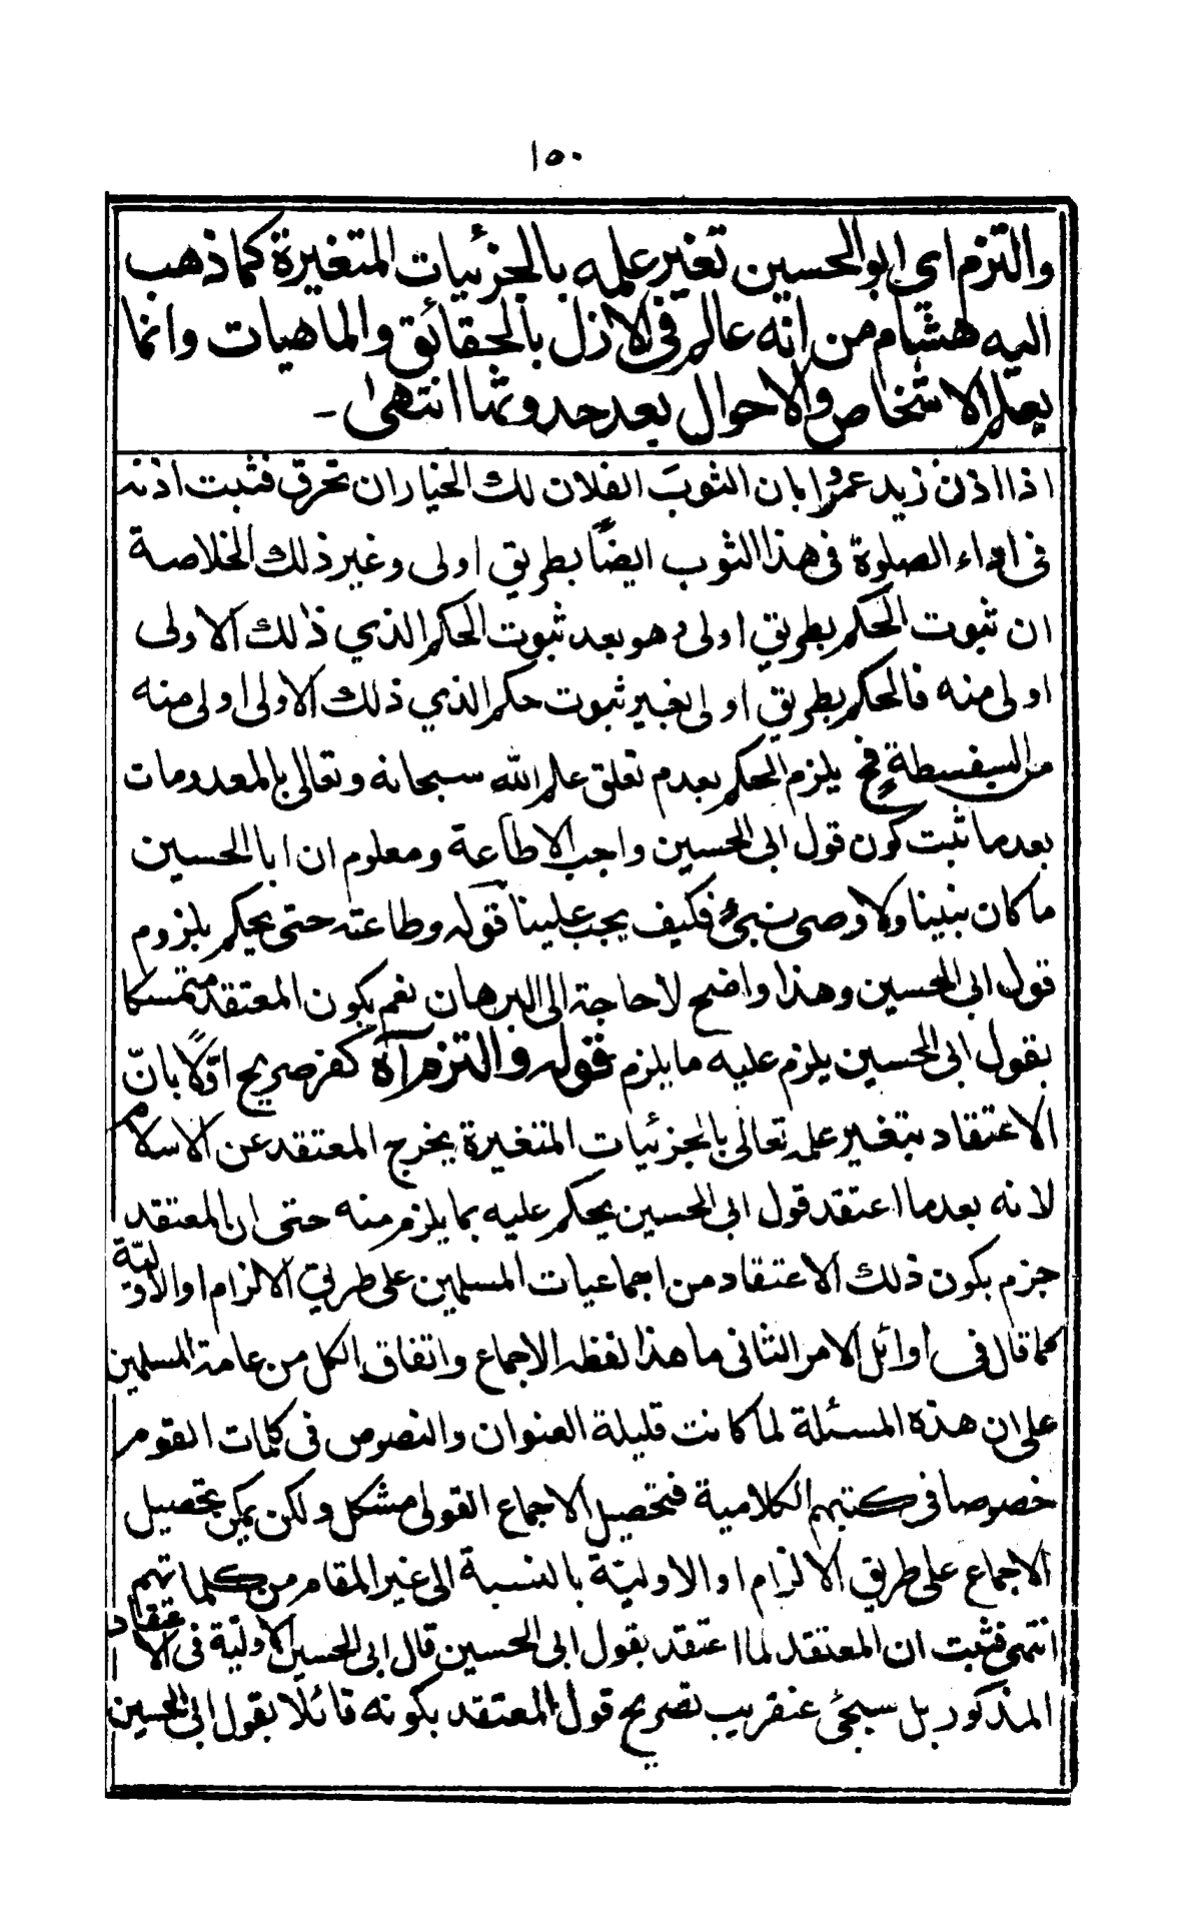 ١٥٠
والتزم اي ابوالحسين تغير علمه بالجزئيات المتغيرة كما ذهب
اليه هشام من انّه عالم فى الازل بالحقائق والماهيات وانما
يعلم الاشخاص والاحوال بعد حدوثها انتهى -
اذا اذن زيد عمرُا بان الثوبَ الفلان لك الخيار ان تحرق فثبت اذنه
فى اداء الصلوة فى هذا الثوب ايضًا بطريق اولى وغير ذلك الخلاصة
ان ثبوت الحكم بطريق اولى وهو بعد ثبوت الحكم الذي ذلك الاولى
اولى منه فالحكم بطريق اولى بغير ثبوت حكم الذي ذلك الاولى اولى منه
من السفسطة فح يلزم الحكم بعدم تعلق علم الله سبحانه وتعالى بالمعدومات
بعد ما ثبت كون قول ابى الحسين واجب الاطاعة ومعلوم ان ابا الحسين
ما كان نبينا ولا وصى نبىٍ فكيف يجب علينا قوله وطاعته حتى يحكم بلزوم
قول ابى الحسين وهذا واضح لا حاجة الى البرهان نعم يكون المعتقد متمسكا
بقول ابى الحسين يلزم عليه ما يلزم قوله والتزم آه كفر صريح اوّلًا بانّ
الاعتقاد بتغير علمه تعالى بالجزئيات المتغيرة يخرج المعتقد عن الاسلام
لانه بعد ما اعتقد قول ابى الحسين يحكم عليه بما يلزم منه حتى ان المعتقد
جزم بكون ذلك الاعتقاد من اجماعيات المسلمين على طريق الالزام او الاوليّة
كما قال فى اوائل الامر الثانى ما هذا لفظه الاجماع واتفاق الكل من عامة المسلمين
على ان هذه المسئلة لما كانت قليلة العنوان والنصوص فى كلمات القوم
خصوصا فى كتبهم الكلامية فتحصيل الاجماع القولى مشكل ولكن يمكن تحصيل
الاجماع على طريق الالزام او الاوليّة بالنسبة الى غير المقام من كلماتهم
انتهى فثبت ان المعتقد لما اعتقد بقول ابى الحسين قال ابى الحسين الاوليّة فى الاعتقاد
المذكور بل سيجئ عنقريب تصريح قول المعتقد بكونه قائلًا بقول ابى الحسين